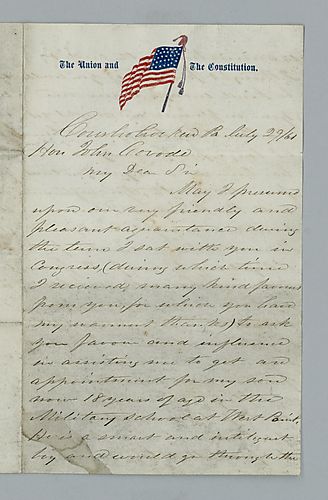 The Union and The Constitution.
Conshohocken Pa July 29/61
Hon John Covode
my Dear Sir
May I presume
upon our very friendly and
pleasant acquaintance during
the term I sat with you in
Congress, (during which time
I received many kind favors
from you, for which you have
my warmest thanks) to ask
your favour and influence
in assisting me to get an
appointment for my son
now 18 years of age in the
Military school at West Point,
He is a smart and inteligent
boy and would go through the